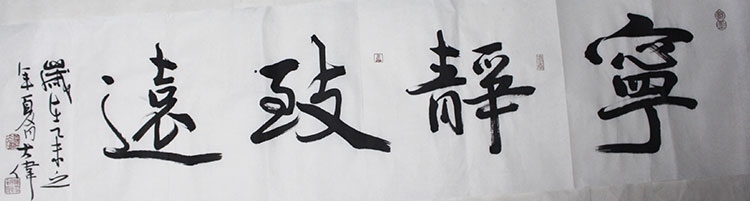 寧靜致遠
歲在乙未之
年夏月大偉